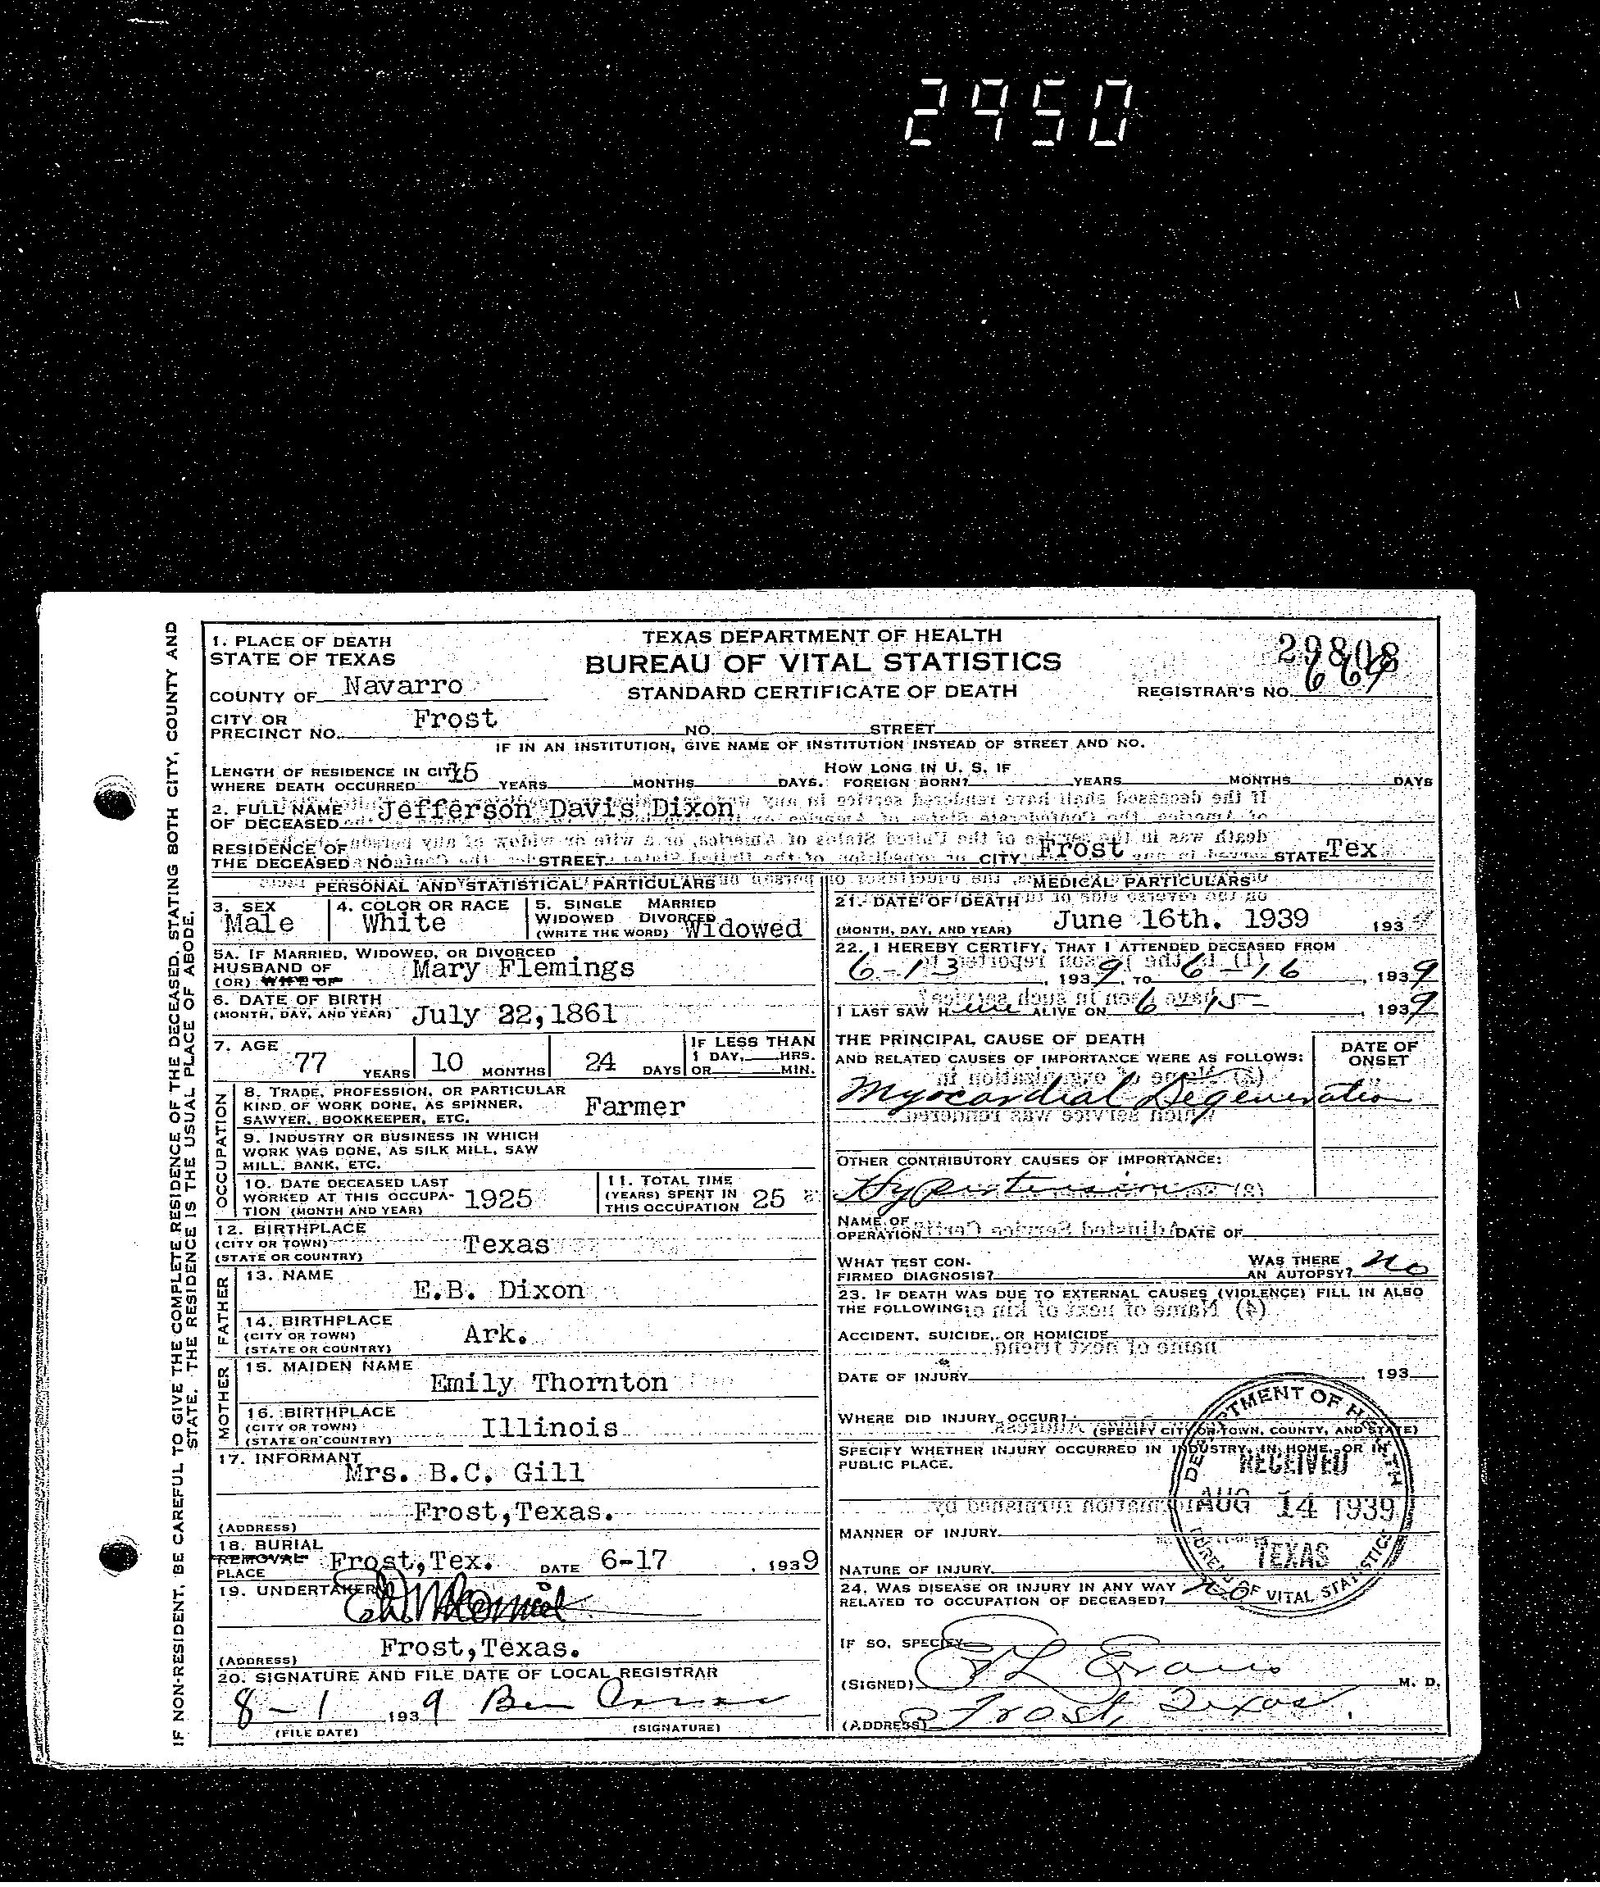 2950
IF NON-RESIDENT, BE CAREFUL TO GIVE THE COMPLETE RESIDENCE OF THE DECEASED, STATING BOTH CITY, COUNTY AND
STATE. THE RESIDENCE IS THE USUAL PLACE OF ABODE.
1. PLACE OF DEATH
STATE OF TEXAS
COUNTY OF Navarro
CITY OR
PRECINCT NO. Frost
TEXAS DEPARTMENT OF HEALTH
BUREAU OF VITAL STATISTICS
STANDARD CERTIFICATE OF DEATH
29808
REGISTRAR'S NO. 669
NO. STREET
IF IN AN INSTITUTION, GIVE NAME OF INSTITUTION INSTEAD OF STREET AND NO.
LENGTH OF RESIDENCE IN CITY
WHERE DEATH OCCURRED 15 YEARS MONTHS DAYS. HOW LONG IN U. S. IF
FOREIGN BORN? YEARS MONTHS DAYS
2. FULL NAME
OF DECEASED Jefferson Davis Dixon
RESIDENCE OF
THE DECEASED NO. STREET CITY Frost STATE Tex
PERSONAL AND STATISTICAL PARTICULARS
3. SEX
Male
4. COLOR OR RACE
White
5. SINGLE MARRIED
WIDOWED DIVORCED
(WRITE THE WORD) Widowed
5A. IF MARRIED, WIDOWED, OR DIVORCED
HUSBAND OF Mary Flemings
(OR) WIFE OF
6. DATE OF BIRTH
(MONTH, DAY, AND YEAR) July 22,1861
7. AGE
77 YEARS 10 MONTHS 24 DAYS
IF LESS THAN
1 DAY, HRS.
OR MIN.
OCCUPATION
8. TRADE, PROFESSION, OR PARTICULAR
KIND OF WORK DONE, AS SPINNER,
SAWYER, BOOKKEEPER, ETC. Farmer
9. INDUSTRY OR BUSINESS IN WHICH
WORK WAS DONE, AS SILK MILL, SAW
MILL, BANK, ETC.
10. DATE DECEASED LAST
WORKED AT THIS OCCUPA-
TION (MONTH AND YEAR) 1925
11. TOTAL TIME
(YEARS) SPENT IN
THIS OCCUPATION 25
12. BIRTHPLACE
(CITY OR TOWN)
(STATE OR COUNTRY) Texas
FATHER
13. NAME
E.B. Dixon
14. BIRTHPLACE
(CITY OR TOWN)
(STATE OR COUNTRY) Ark.
MOTHER
15. MAIDEN NAME
Emily Thornton
16. BIRTHPLACE
(CITY OR TOWN)
(STATE OR COUNTRY) Illinois
17. INFORMANT
Mrs. B.C. Gill
(ADDRESS) Frost,Texas.
18. BURIAL
REMOVAL
PLACE Frost,Tex. DATE 6-17, 1939
19. UNDERTAKER
(ADDRESS) Frost,Texas.
20. SIGNATURE AND FILE DATE OF LOCAL REGISTRAR
8-1 1939 Ben
(FILE DATE) (SIGNATURE)
MEDICAL PARTICULARS
21. DATE OF DEATH
(MONTH, DAY, AND YEAR) June 16th. 1939 193
22. I HEREBY CERTIFY, THAT I ATTENDED DECEASED FROM
6-13, 1939, TO 6-16, 1939
I LAST SAW HIM ALIVE ON 6-15-, 1939
THE PRINCIPAL CAUSE OF DEATH
AND RELATED CAUSES OF IMPORTANCE WERE AS FOLLOWS:
DATE OF
ONSET
Myocardial Degeneration
OTHER CONTRIBUTORY CAUSES OF IMPORTANCE:
Hypertension
NAME OF
OPERATION DATE OF
WHAT TEST CON-
FIRMED DIAGNOSIS? WAS THERE
AN AUTOPSY? No
23. IF DEATH WAS DUE TO EXTERNAL CAUSES (VIOLENCE) FILL IN ALSO
THE FOLLOWING:
ACCIDENT, SUICIDE, OR HOMICIDE
DATE OF INJURY , 193
WHERE DID INJURY OCCUR?
(SPECIFY CITY OR TOWN, COUNTY, AND STATE)
SPECIFY WHETHER INJURY OCCURRED IN INDUSTRY, IN HOME, OR IN
PUBLIC PLACE.
MANNER OF INJURY
NATURE OF INJURY
24. WAS DISEASE OR INJURY IN ANY WAY
RELATED TO OCCUPATION OF DECEASED? no
IF SO, SPECIFY
(SIGNED) Evans M. D.
(ADDRESS) Frost, Texas.
DEPARTMENT OF HEALTH
RECEIVED
AUG 14 1939
TEXAS
BUREAU OF VITAL STATISTICS